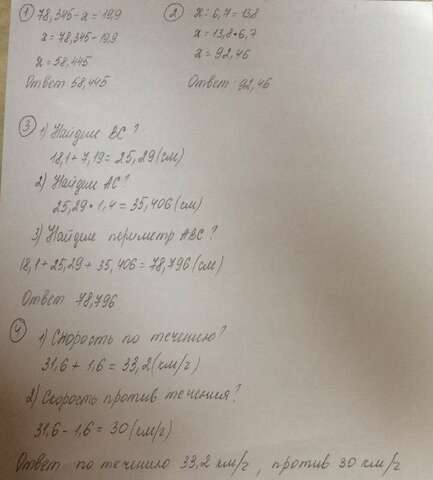 1 78,345 - x = 19,9
x = 78,345 - 19,9
x = 58,445
Ответ 58,445
2 x : 6,7 = 13,8
x = 13,8 • 6,7
x = 92,46
Ответ 92,46
3 1) Найдем BC?
18,1 + 7,19 = 25,29 (см)
2) Найдем AC?
25,29 • 1,4 = 35,406 (см)
3) Найдем периметр ABC?
18,1 + 25,29 + 35,406 = 78,796 (см)
Ответ 78,796
4 1) Скорость по течению?
31,6 + 1,6 = 33,2 (км/г)
2) Скорость против течения?
31,6 - 1,6 = 30 (км/г)
Ответ по течению 33,2 км/г, против 30 км/г